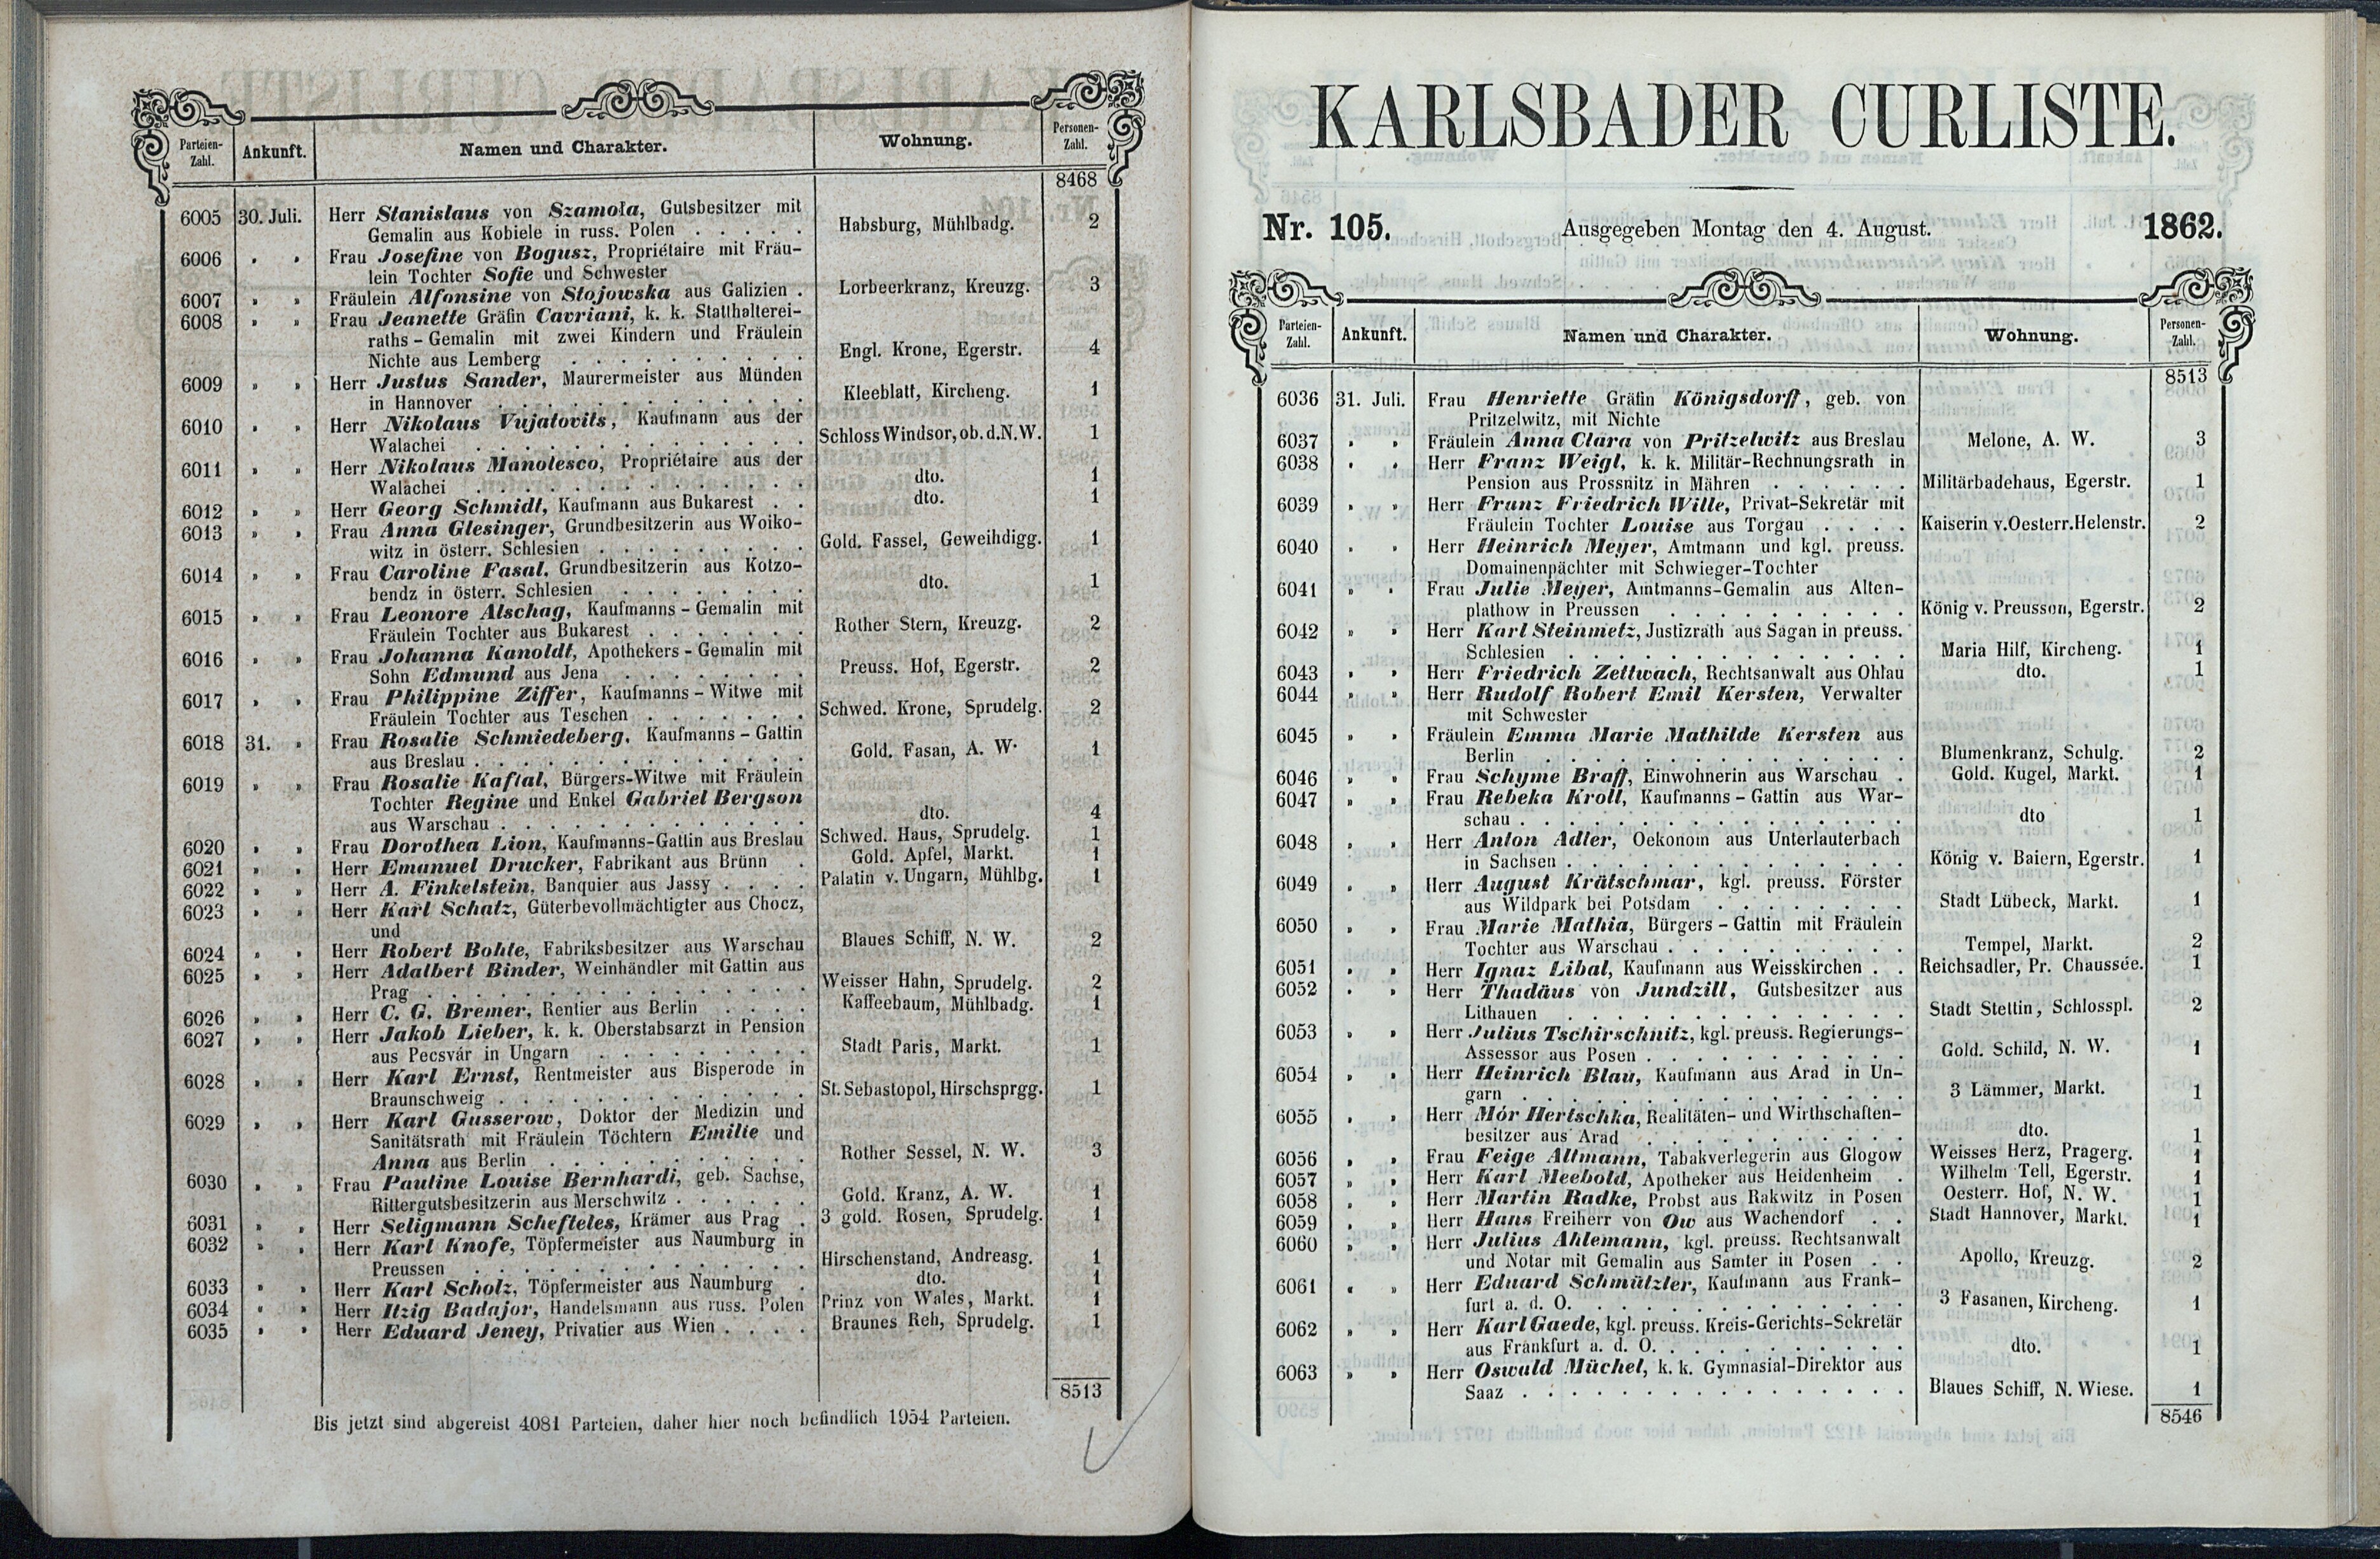 Parteien-Zahl. Ankunft. Namen und Charakter. Wohnung. Personen-Zahl.
8468
6005 30. Juli. Herr Stanislaus von Szamoła, Gutsbesitzer mit
Gemalin aus Kobiele in russ. Polen . . . . . Habsburg, Mühlbadg. 2
6006 „ „ Frau Josefine von Bogusz, Propriétaire mit Fräu-
lein Tochter Sofie und Schwester
6007 „ „ Fräulein Alfonsine von Stojowska aus Galizien . Lorbeerkranz, Kreuzg. 3
6008 „ „ Frau Jeanette Gräfin Cavriani, k. k. Statthalterei-
raths-Gemalin mit zwei Kindern und Fräulein
Nichte aus Lemberg . . . . . . . . . . Engl. Krone, Egerstr. 4
6009 „ „ Herr Justus Sander, Maurermeister aus Münden
in Hannover . . . . . . . . . . . . . Kleeblatt, Kircheng. 1
6010 „ „ Herr Nikolaus Vujatovits, Kaufmann aus der
Walachei . . . . . . . . . . . . . . Schloss Windsor, ob. d. N. W. 1
6011 „ „ Herr Nikolaus Manolesco, Propriétaire aus der
Walachei . . . . . . . . . . . . . . dto. 1
6012 „ „ Herr Georg Schmidt, Kaufmann aus Bukarest . . dto. 1
6013 „ „ Frau Anna Glesinger, Grundbesitzerin aus Woiko-
witz in österr. Schlesien . . . . . . . . . Gold. Fassel, Geweihdigg. 1
6014 „ „ Frau Caroline Fasal, Grundbesitzerin aus Kotzo-
bendz in österr. Schlesien . . . . . . . . dto. 1
6015 „ „ Frau Leonore Alschag, Kaufmanns-Gemalin mit
Fräulein Tochter aus Bukarest . . . . . . . Rother Stern, Kreuzg. 2
6016 „ „ Frau Johanna Kanoldt, Apothekers-Gemalin mit
Sohn Edmund aus Jena . . . . . . . . Preuss. Hof, Egerstr. 2
6017 „ „ Frau Philippine Ziffer, Kaufmanns-Witwe mit
Fräulein Tochter aus Teschen . . . . . . . Schwed. Krone, Sprudelg. 2
6018 31. „ Frau Rosalie Schmiedeberg, Kaufmanns-Gattin
aus Breslau . . . . . . . . . . . . . . Gold. Fasan, A. W. 1
6019 „ „ Frau Rosalie Kaftal, Bürgers-Witwe mit Fräulein
Tochter Regine und Enkel Gabriel Bergson
aus Warschau . . . . . . . . . . . . . dto. 4
6020 „ „ Frau Dorothea Lion, Kaufmanns-Gattin aus Breslau Schwed. Haus, Sprudelg. 1
6021 „ „ Herr Emanuel Drucker, Fabrikant aus Brünn . Gold. Apfel, Markt. 1
6022 „ „ Herr A. Finkelstein, Banquier aus Jassy . . . . Palatin v. Ungarn, Mühlbg. 1
6023 „ „ Herr Karl Schatz, Güterbevollmächtigter aus Chocz,
und
6024 „ „ Herr Robert Bohte, Fabriksbesitzer aus Warschau Blaues Schiff, N. W. 2
6025 „ „ Herr Adalbert Binder, Weinhändler mit Gattin aus
Prag . . . . . . . . . . . . . . . . Weisser Hahn, Sprudelg. 2
6026 „ „ Herr C. G. Bremer, Rentier aus Berlin . . . . Kaffeebaum, Mühlbadg. 1
6027 „ „ Herr Jakob Lieber, k. k. Oberstabsarzt in Pension
aus Pecsvár in Ungarn . . . . . . . . . Stadt Paris, Markt. 1
6028 „ „ Herr Karl Ernst, Rentmeister aus Bisperode in
Braunschweig . . . . . . . . . . . . . St. Sebastopol, Hirschsprgg. 1
6029 „ „ Herr Karl Gusserow, Doktor der Medizin und
Sanitätsrath mit Fräulein Töchtern Emilie und
Anna aus Berlin . . . . . . . . . . . Rother Sessel, N. W. 3
6030 „ „ Frau Pauline Louise Bernhardi, geb. Sachse,
Rittergutsbesitzerin aus Merschwitz . . . . . . Gold. Kranz, A. W. 1
6031 „ „ Herr Seligmann Schefteles, Krämer aus Prag . 3 gold. Rosen, Sprudelg. 1
6032 „ „ Herr Karl Knofe, Töpfermeister aus Naumburg in
Preussen . . . . . . . . . . . . . . Hirschenstand, Andreasg. 1
6033 „ „ Herr Karl Scholz, Töpfermeister aus Naumburg . dto. 1
6034 „ „ Herr Itzig Badajor, Handelsmann aus russ. Polen Prinz von Wales, Markt. 1
6035 „ „ Herr Eduard Jeney, Privatier aus Wien . . . . Braunes Reh, Sprudelg. 1
8513
Bis jetzt sind abgereist 4081 Parteien, daher hier noch befindlich 1954 Parteien.
KARLSBADER CURLISTE.
Nr. 105. Ausgegeben Montag den 4. August. 1862.
Parteien-Zahl. Ankunft. Namen und Charakter. Wohnung. Personen-Zahl.
8513
6036 31. Juli. Frau Henriette Gräfin Königsdorff, geb. von
Pritzelwitz, mit Nichte
6037 „ „ Fräulein Anna Clara von Pritzelwitz aus Breslau Melone, A. W. 3
6038 „ „ Herr Franz Weigl, k. k. Militär-Rechnungsrath in
Pension aus Prossnitz in Mähren . . . . . . Militärbadehaus, Egerstr. 1
6039 „ „ Herr Franz Friedrich Wille, Privat-Sekretär mit
Fräulein Tochter Louise aus Torgau . . . . Kaiserin v. Oesterr. Helenstr. 2
6040 „ „ Herr Heinrich Meyer, Amtmann und kgl. preuss.
Domainenpächter mit Schwieger-Tochter
6041 „ „ Frau Julie Meyer, Amtmanns-Gemalin aus Alten-
plathow in Preussen . . . . . . . . . . König v. Preussen, Egerstr. 2
6042 „ „ Herr Karl Steinmetz, Justizrath aus Sagan in preuss.
Schlesien . . . . . . . . . . . . . . Maria Hilf, Kircheng. 1
6043 „ „ Herr Friedrich Zettwach, Rechtsanwalt aus Ohlau dto. 1
6044 „ „ Herr Rudolf Robert Emil Kersten, Verwalter
mit Schwester
6045 „ „ Fräulein Emma Marie Mathilde Kersten aus
Berlin . . . . . . . . . . . . . . . Blumenkranz, Schulg. 2
6046 „ „ Frau Schyme Braff, Einwohnerin aus Warschau . Gold. Kugel, Markt. 1
6047 „ „ Frau Rebeka Kroll, Kaufmanns-Gattin aus War-
schau . . . . . . . . . . . . . . . . dto 1
6048 „ „ Herr Anton Adler, Oekonom aus Unterlauterbach
in Sachsen . . . . . . . . . . . . . . König v. Baiern, Egerstr. 1
6049 „ „ Herr August Krätschmar, kgl. preuss. Förster
aus Wildpark bei Potsdam . . . . . . . . Stadt Lübeck, Markt. 1
6050 „ „ Frau Marie Mathia, Bürgers-Gattin mit Fräulein
Tochter aus Warschau . . . . . . . . . . Tempel, Markt. 2
6051 „ „ Herr Ignaz Libal, Kaufmann aus Weisskirchen . . Reichsadler, Pr. Chaussée. 1
6052 „ „ Herr Thadäus von Jundzill, Gutsbesitzer aus
Lithauen . . . . . . . . . . . . . . Stadt Stettin, Schlosspl. 2
6053 „ „ Herr Julius Tschirschnitz, kgl. preuss. Regierungs-
Assessor aus Posen . . . . . . . . . . . Gold. Schild, N. W. 1
6054 „ „ Herr Heinrich Blau, Kaufmann aus Arad in Un-
garn . . . . . . . . . . . . . . . . 3 Lämmer, Markt. 1
6055 „ „ Herr Mór Hertschka, Realitäten- und Wirthschaften-
besitzer aus Arad . . . . . . . . . . . dto. 1
6056 „ „ Frau Feige Altmann, Tabakverlegerin aus Glogow Weisses Herz, Pragerg. 1
6057 „ „ Herr Karl Meebold, Apotheker aus Heidenheim . Wilhelm Tell, Egerstr. 1
6058 „ „ Herr Martin Radke, Probst aus Rakwitz in Posen Oesterr. Hof, N. W. 1
6059 „ „ Herr Hans Freiherr von Ow aus Wachendorf . . Stadt Hannover, Markt. 1
6060 „ „ Herr Julius Ahlemann, kgl. preuss. Rechtsanwalt
und Notar mit Gemalin aus Samter in Posen . . Apollo, Kreuzg. 2
6061 „ „ Herr Eduard Schmützler, Kaufmann aus Frank-
furt a. d. O. . . . . . . . . . . . . . 3 Fasanen, Kircheng. 1
6062 „ „ Herr Karl Gaede, kgl. preuss. Kreis-Gerichts-Sekretär
aus Frankfurt a. d. O. . . . . . . . . . . dto. 1
6063 „ „ Herr Oswald Müchel, k. k. Gymnasial-Direktor aus
Saaz . . . . . . . . . . . . . . . . Blaues Schiff, N. Wiese. 1
8546